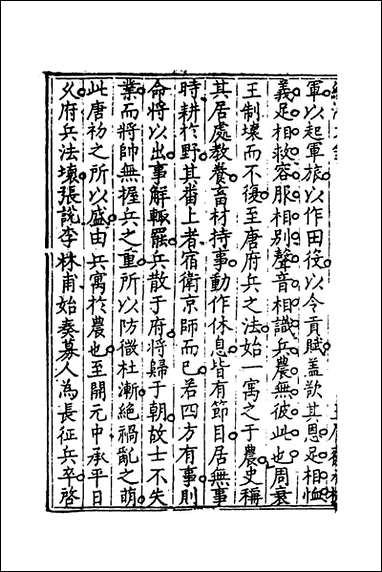 軍以起軍旅以作田役以令貢賦盖欲其恩足相恤
義足相救容服相别聲音相識兵農無彼此也周衰
王制壞而不復至唐府兵之法始一寓之于農史稱
其居處教養畜材待事動作休息皆有節目居無事
時耕於野其番上者宿衛京師而已若四方有事則
命將以出事解輙罷兵散于府將歸于朝故士不失
業而將帥無握兵之重所以防微杜漸絕禍亂之萌
此唐初之所以盛由兵寓於農也至開元中承平日
乆府兵法壞張說李林甫始奏募人為長征兵卒啓